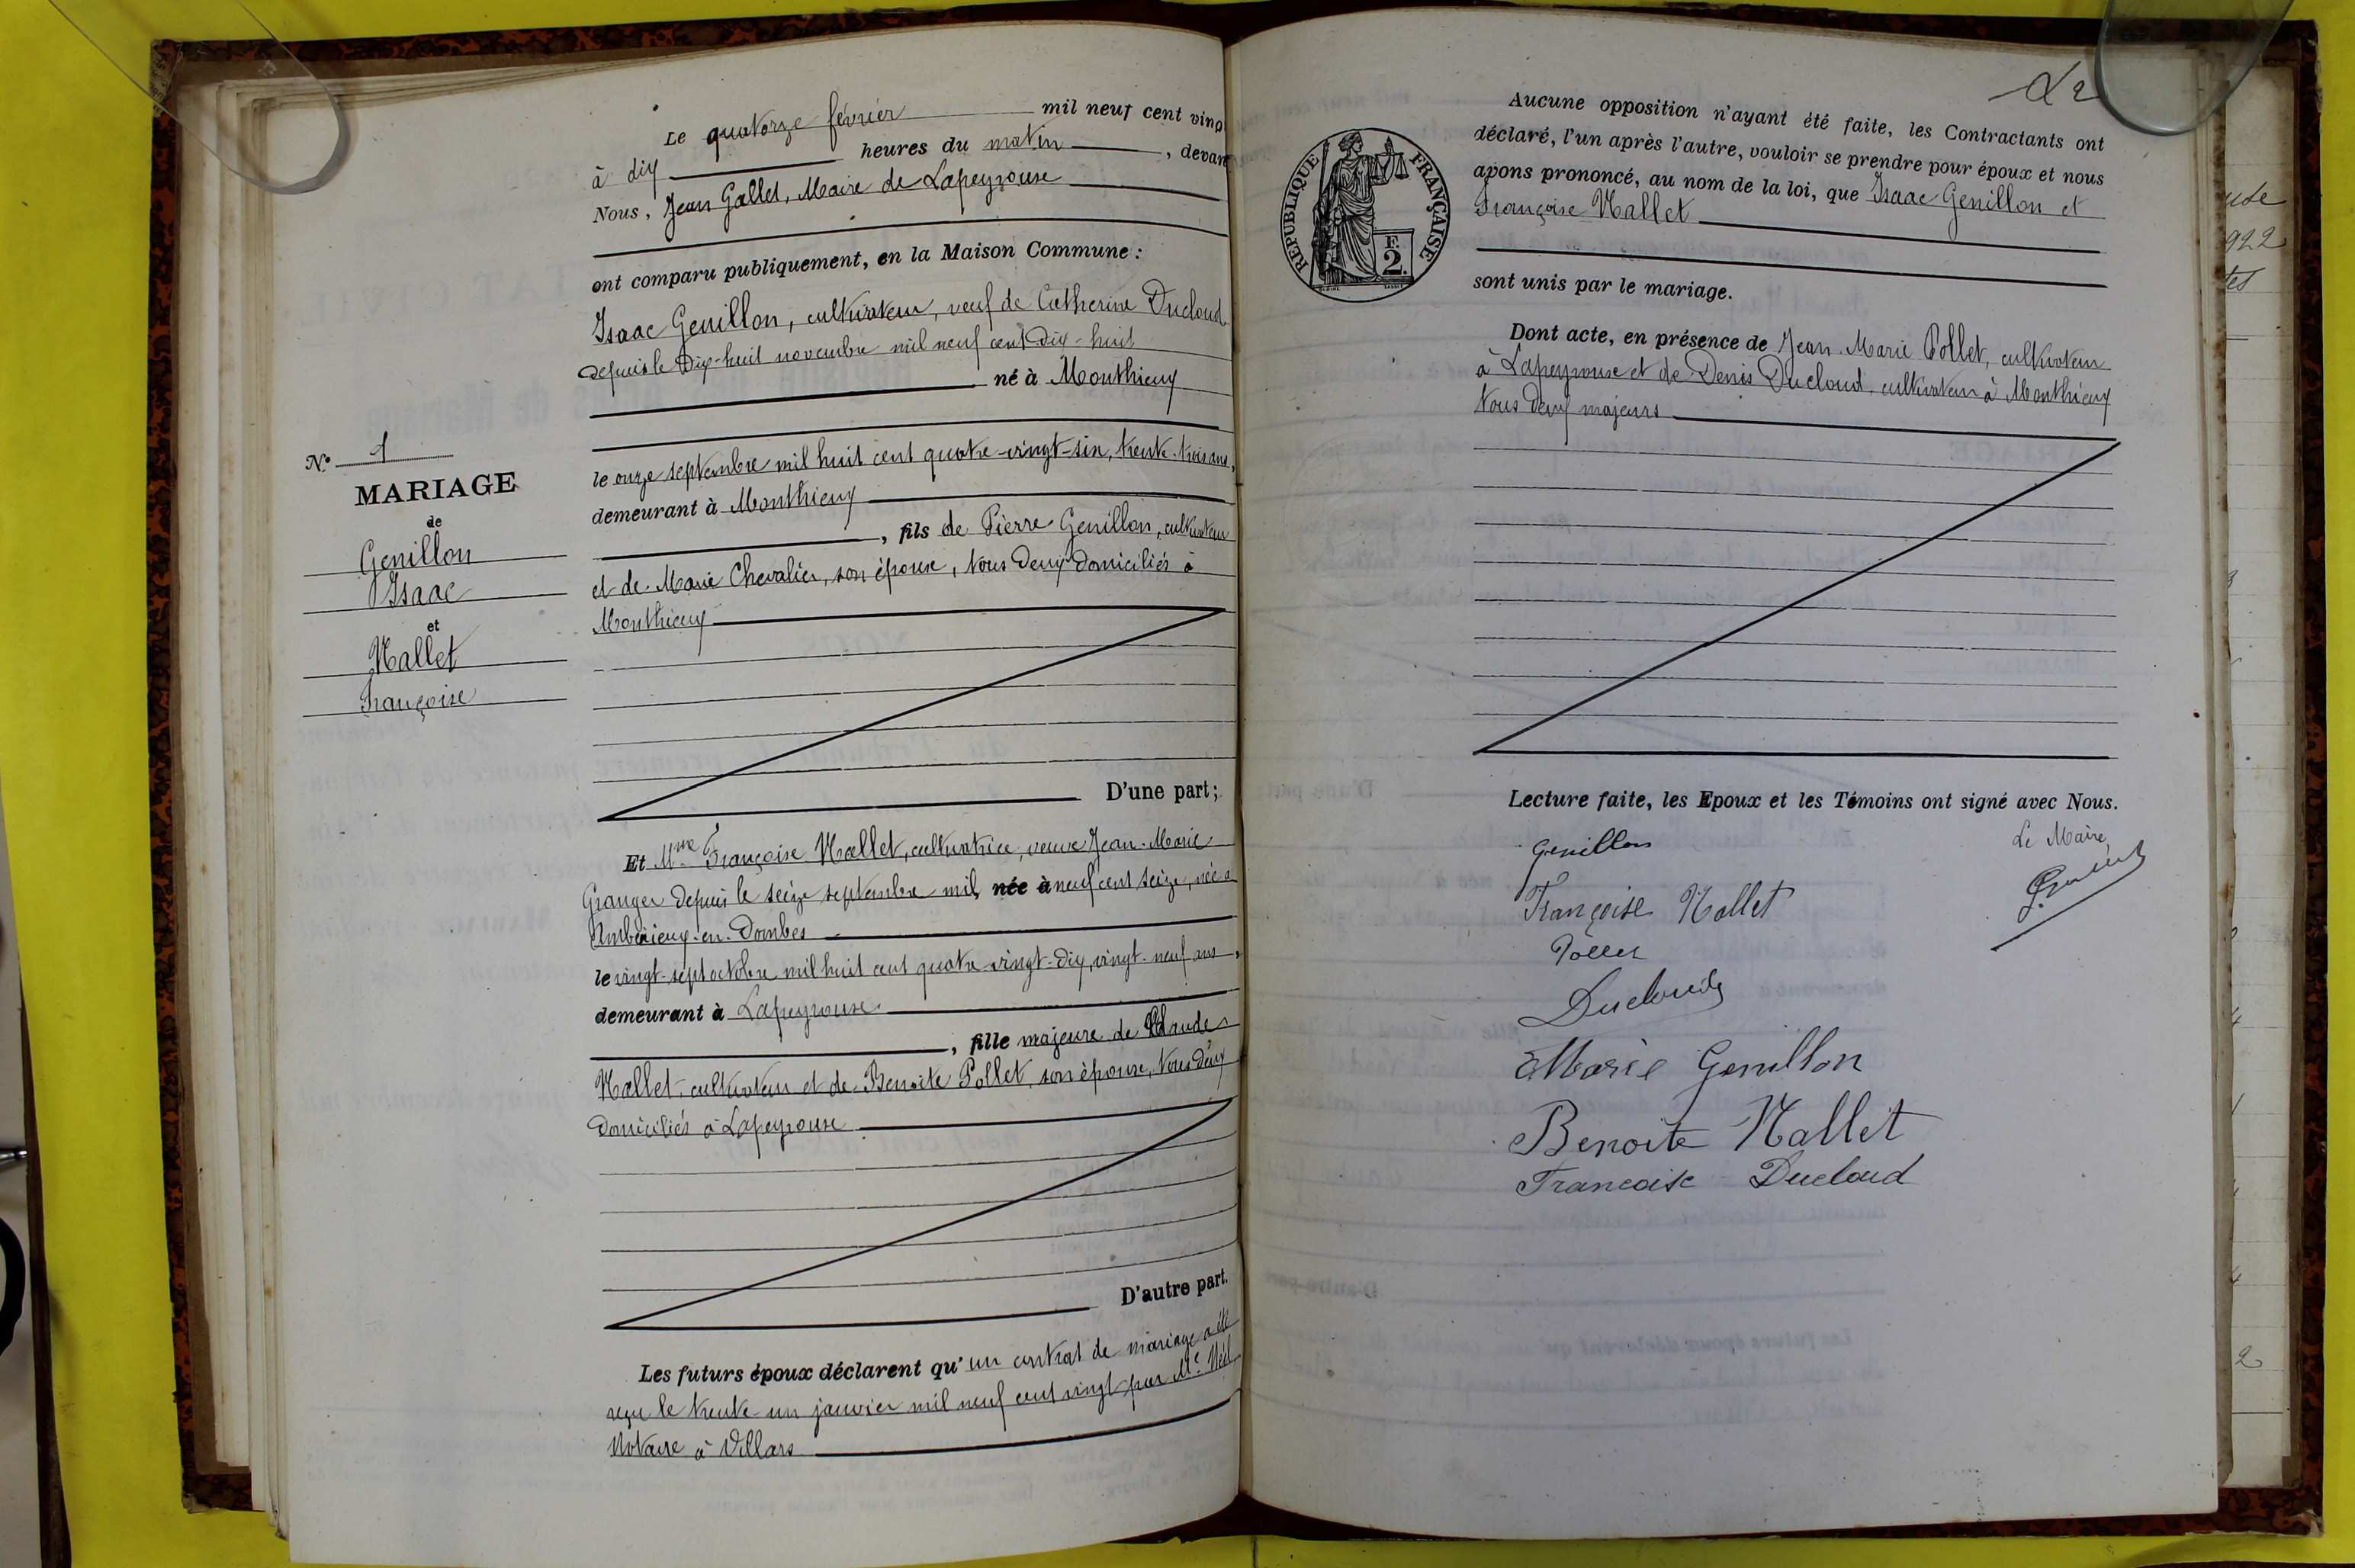 Le quatorze février mil neuf cent vingt
à dix heures du matin, devant
Nous, Jean Gallet, Maire de Lapeyrouse
ont comparu publiquement, en la Maison Commune :
Isaac Genillon, cultivateur, veuf de Catherine Ducloud
depuis le Dix-huit novembre mil neuf cent Dix-huit
né à Monthieux
le onze septembre mil huit cent quatre-vingt-six, trente-trois ans,
demeurant à Monthieux
, fils de Pierre Genillon, cultivateur
et de Marie Chevalier, son épouse, tous deux domiciliés à
Monthieux
D'une part;
N° 1
MARIAGE
de
Genillon
Isaac
et
Mallet
Françoise
Et Mme Françoise Mallet, cultivatrice, veuve Jean-Marie
Granger depuis le seize septembre mil née à neuf cent seize, née à
Ambérieux-en-Dombes
le vingt-sept octobre mil huit cent quatre-vingt-dix, vingt-neuf ans,
demeurant à Lapeyrouse
, fille majeure de Claude
Mallet, cultivateur et de Benoite Pollet, son épouse, tous deux
domiciliés à Lapeyrouse
D'autre part.
Les futurs époux déclarent qu'un contrat de mariage a été
reçu le trente-un janvier mil neuf cent vingt par Me
Notaire à Villars
RÉPUBLIQUE FRANÇAISE
F.
2.
Aucune opposition n'ayant été faite, les Contractants ont
déclaré, l'un après l'autre, vouloir se prendre pour époux et nous
avons prononcé, au nom de la loi, que Isaac Genillon et
Françoise Mallet
sont unis par le mariage.
Dont acte, en présence de Jean-Marie Pollet, cultivateur
à Lapeyrouse et de Denis Ducloud, cultivateur à Monthieux
tous deux majeurs
Lecture faite, les Epoux et les Témoins ont signé avec Nous.
Genillon
Le Maire,
Françoise Mallet
Pollet
Ducloud
Marie Genillon
Benoite Mallet
Francoise Ducloud
922
2